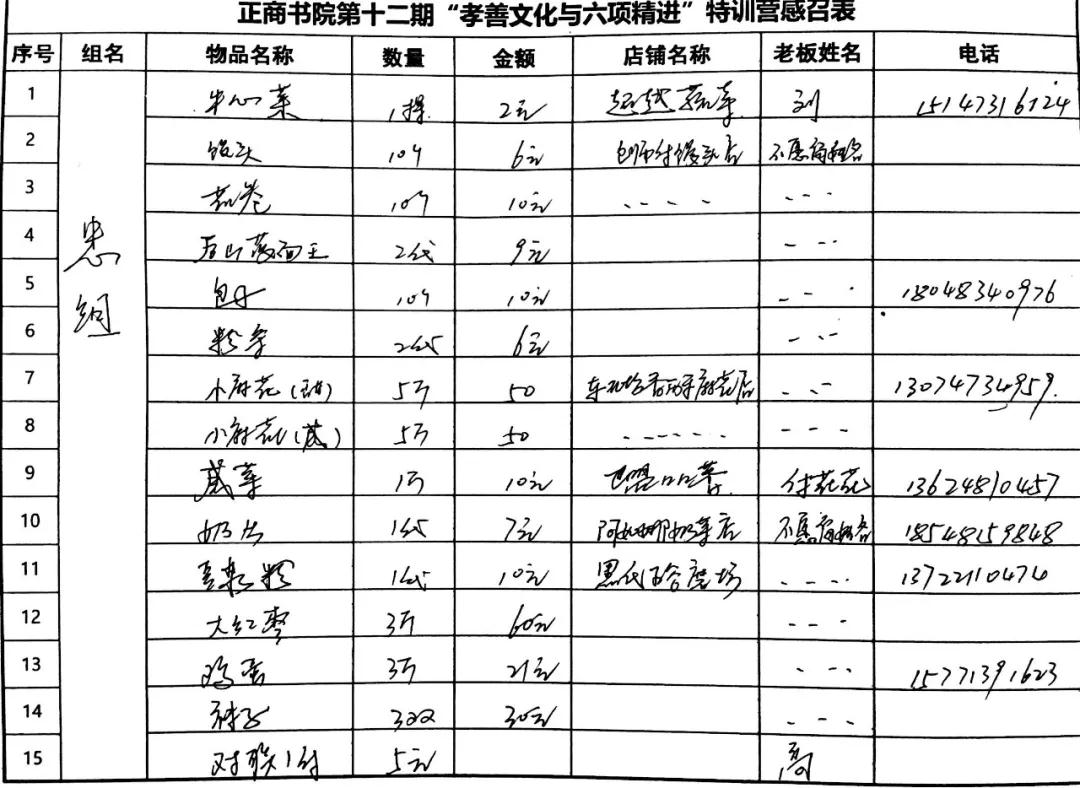 正商书院第十二期“孝善文化与六项精进”特训营感召表
序号 组名 物品名称 数量 金额 店铺名称 老板姓名 电话
忠组
1 1提 2元 超越蔬菜 刘 15147316124
2 馒头 10个 6元 包师付馒头店 不愿留姓名
3 花卷 10个 10元 - - - - - - -
4 后山莜面王 2袋 9元 - - -
5 包子 10个 10元 - - - 18048340976
6 粉条 2袋 6元 - - -
7 小麻花(甜) 5斤 50 - - - 13074734959.
8 小麻花(咸) 5斤 50 - - - - - - - - -
9 咸菜 1斤 10元 付花花 13624810457
10 奶片 1袋 7元 不愿留姓名 18548159848
11 1袋 10元 - - - - 13722110474
12 大红枣 3斤 60元 - - -
13 鸡蛋 3斤 21元 - - - 15771391623
14 袜子 3双 30元 - - -
15 对联1付 5元 高